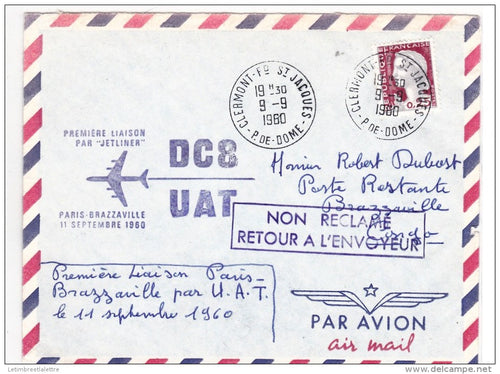 CLERMONT-Fd St JACQUES
19 H30
9-9
1960
- P.DE-DOME -
CLERMONT-Fd St JACQUES
19 H30
9-9
1960
- P.DE-DOME -
FRANÇAISE
PREMIÈRE LIAISON
PAR "JETLINER"
DC8
UAT
PARIS-BRAZZAVILLE
11 SEPTEMBRE 1960
Monsieur Robert Dubost
Poste Restante
Brazzaville
Congo
NON RECLAMÉ
RETOUR A L'ENVOYEUR
Première Liaison Paris-
Brazzaville par U.A.T.
le 11 septembre 1960
PAR AVION
air mail
Letimbreetlalettre
delcampe.net